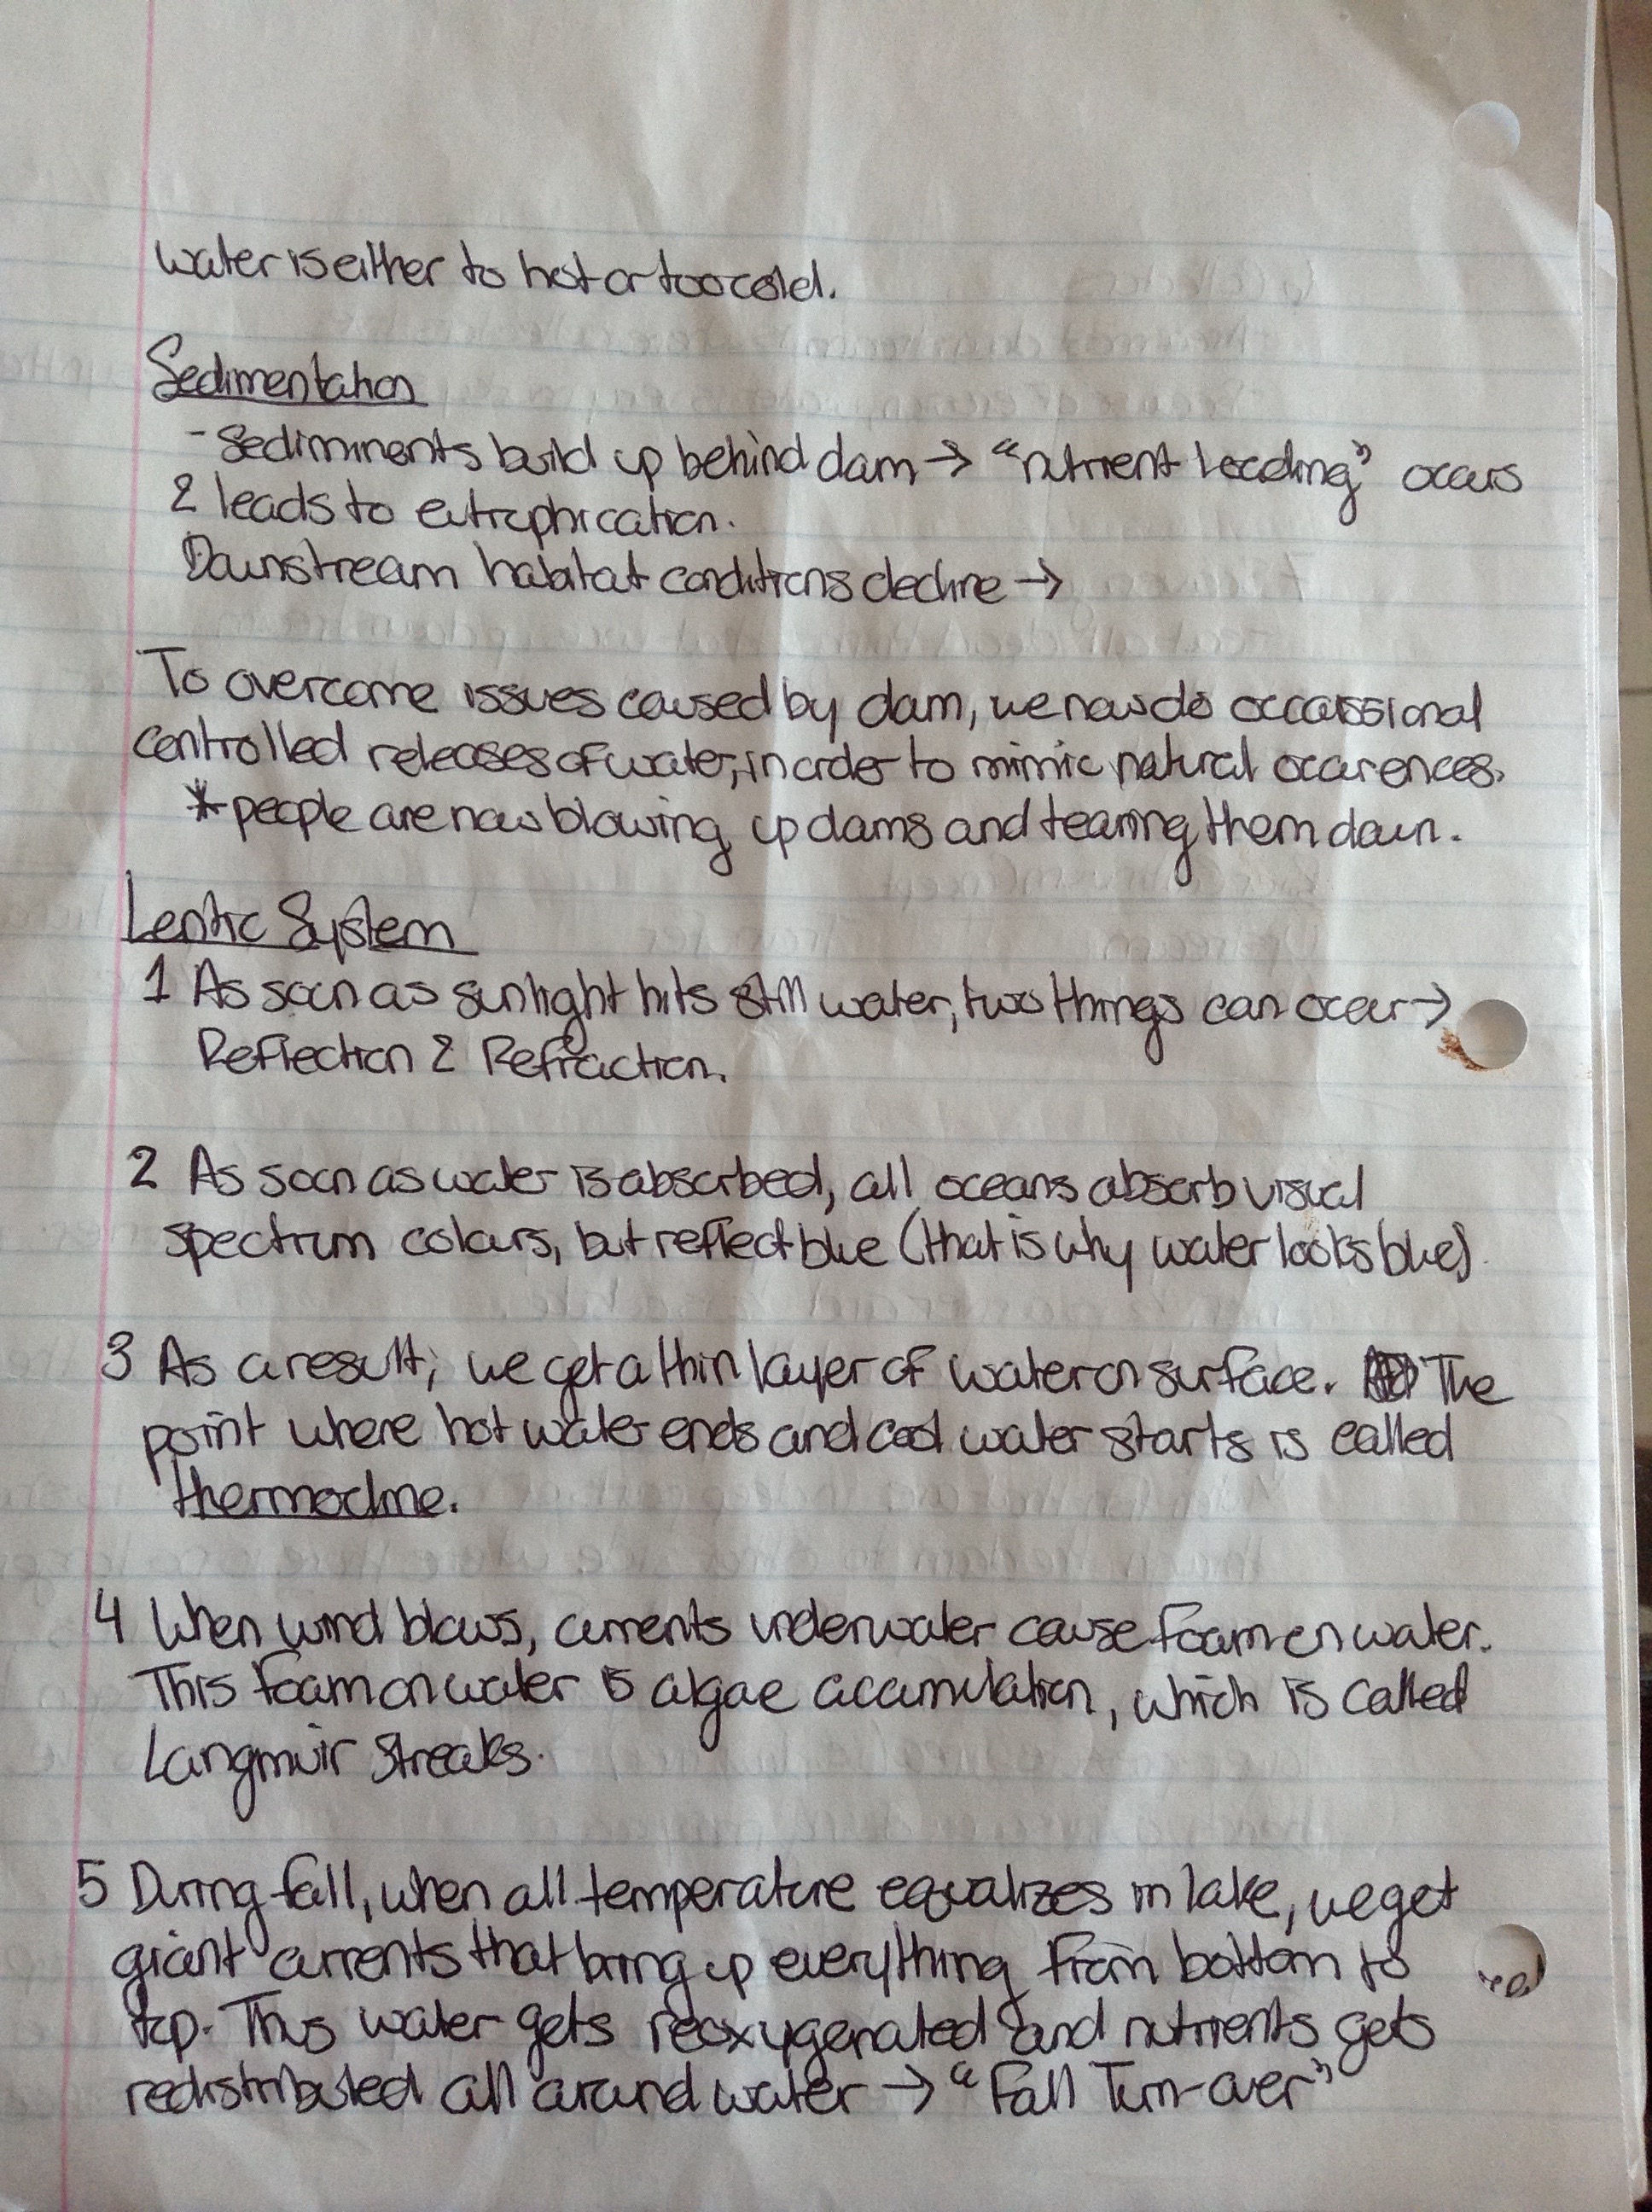 water is either to hot or too cold.
Sedimentation
- Sediminents build up behind dam → "nutrient Loading" occurs
& leads to eutrophication.
Downstream habitat conditions decline →
To overcome issues caused by dam, we now do occassional
controlled releases of water, in order to mimic natural occurences.
* people are now blowing up dams and tearing them down.
Lentic System
1 As soon as sunlight hits still water, two things can occur →
Reflection & Refraction.
2 As soon as water is absorbed, all oceans absorb visual
spectrum colours, but reflect blue (that is why water looks blue)
3 As a result, we get a thin layer of water on surface. The
point where hot water ends and cool water starts is called
thermocline.
4 When wind blows, currents underwater cause foam on water.
This foam on water is algae accumulation, which is called
Langmuir Streaks.
5 During fall, when all temperature equalizes in lake, we get
giant currents that bring up everything from bottom to
top. Thus water gets reoxygenated and nutrients gets
redistributed all around water → "Fall Turn-over"